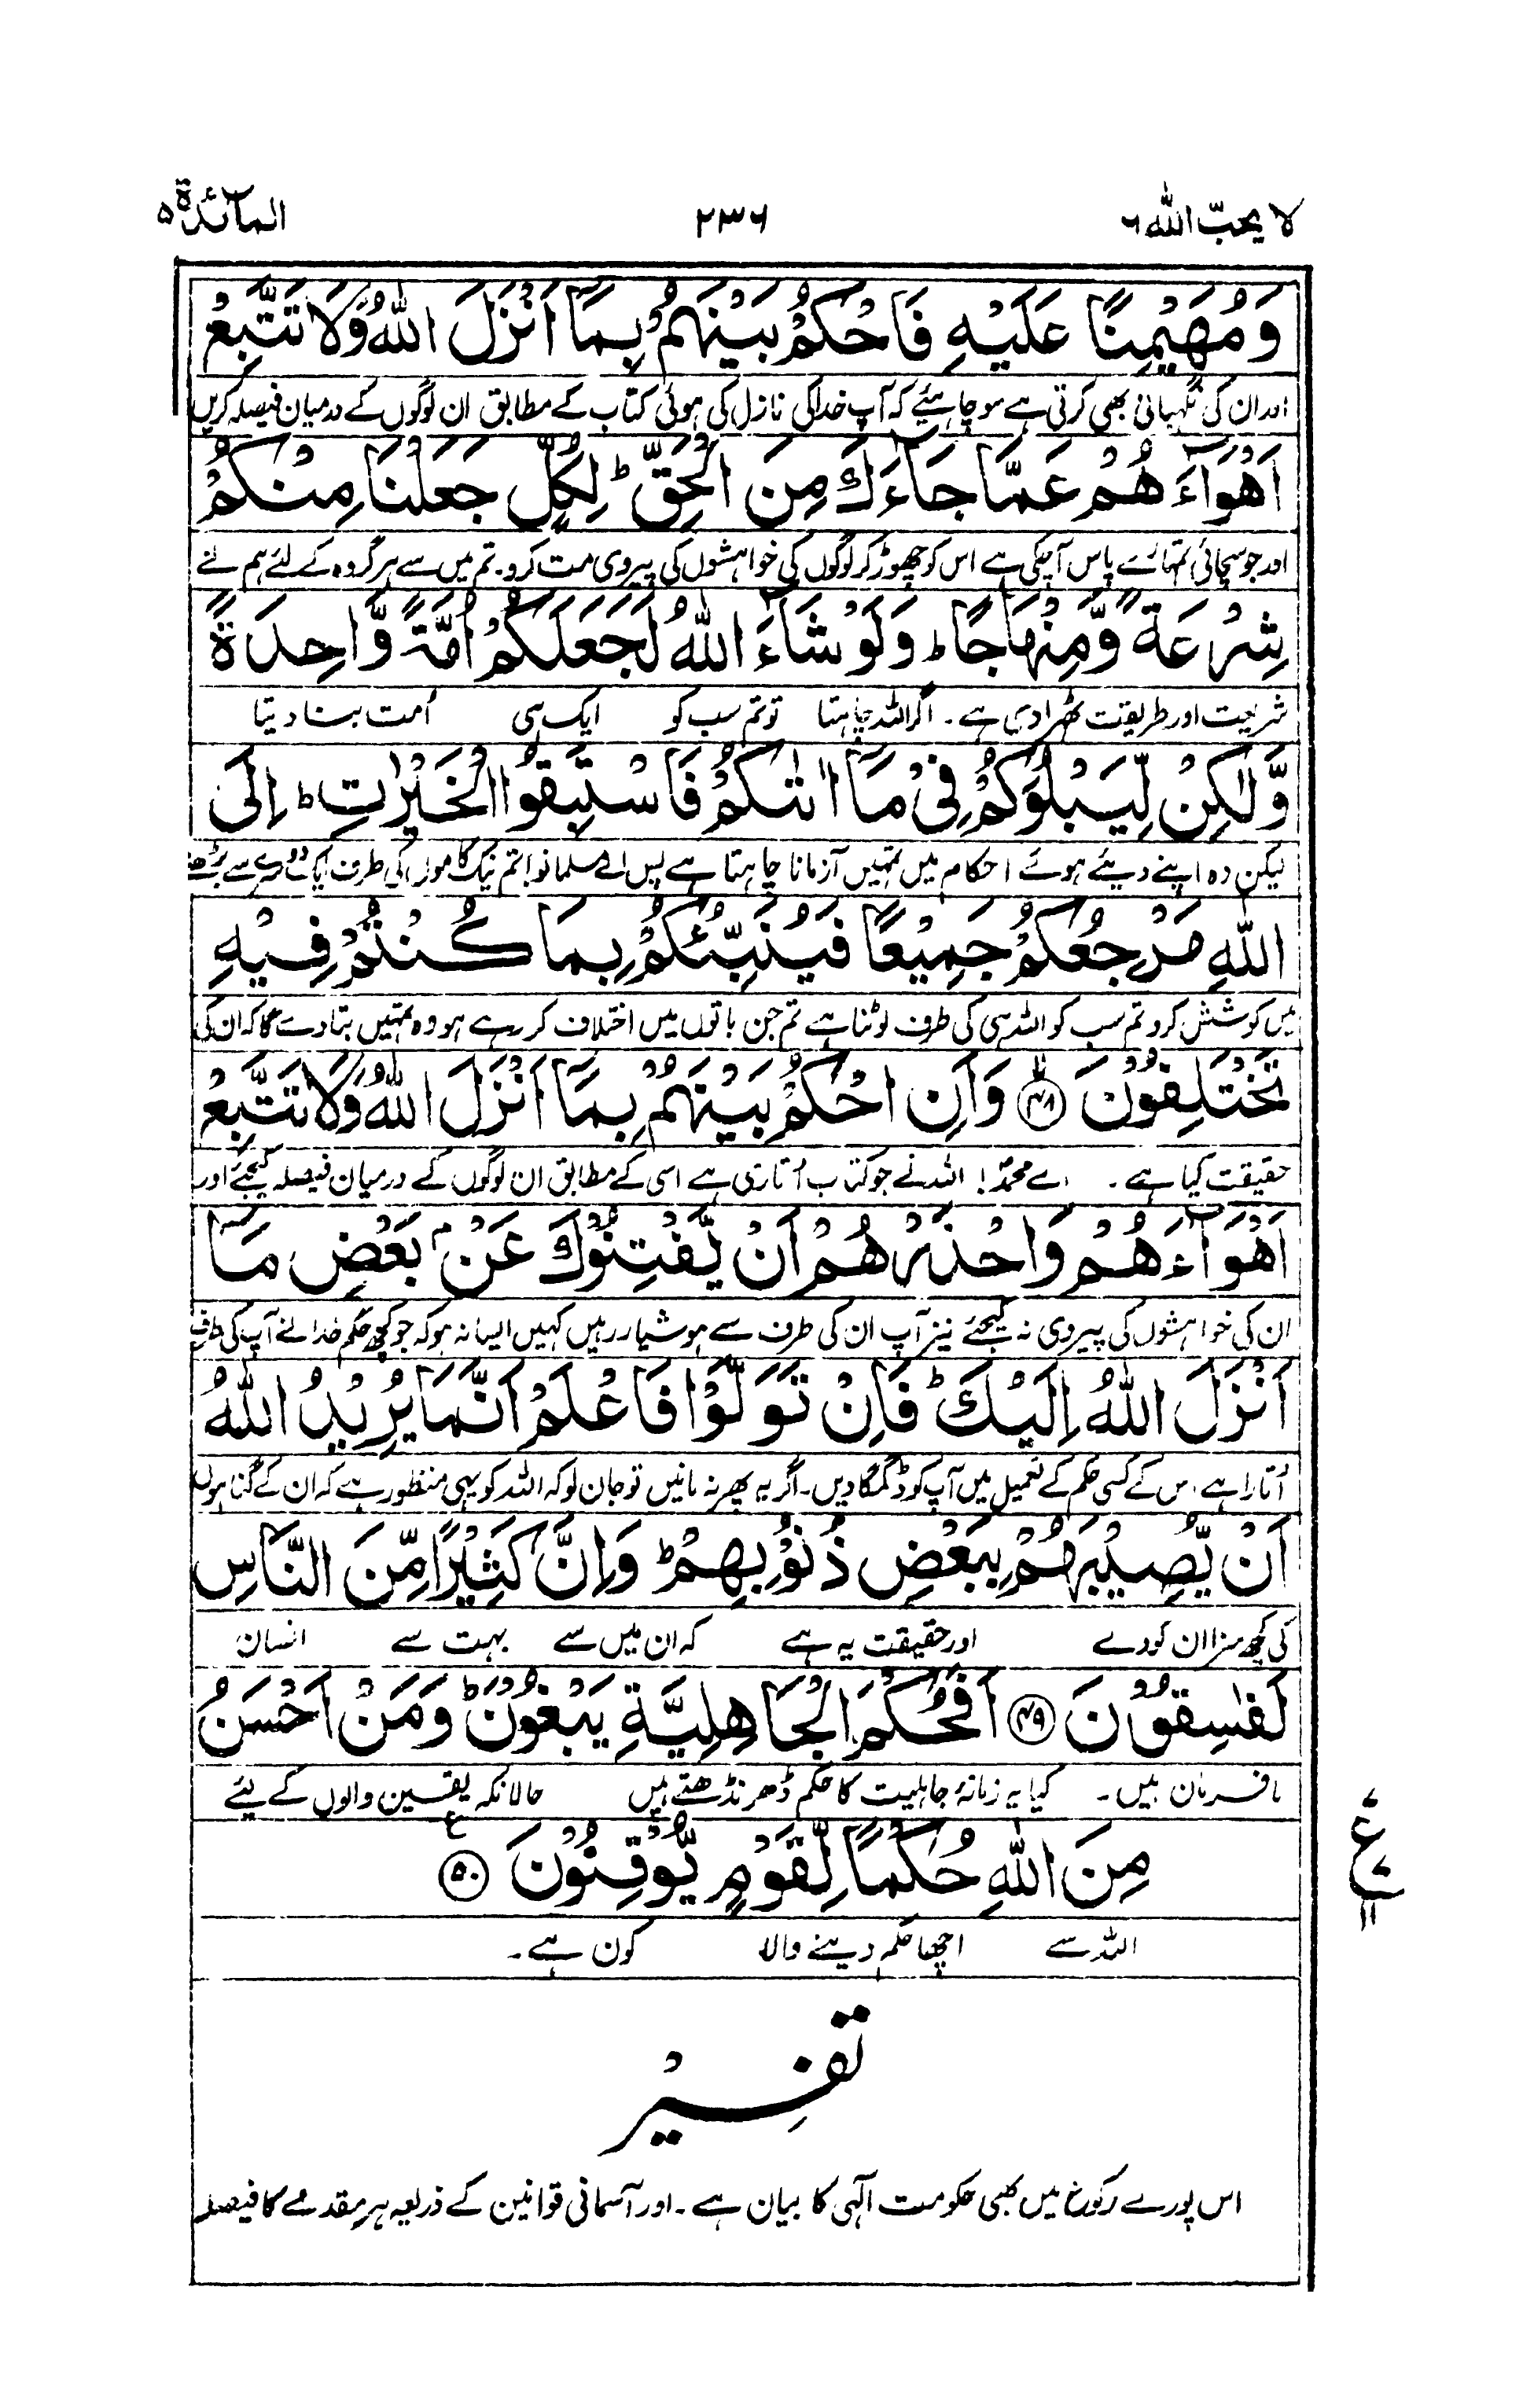 لا یحبّ اللہ ۶
۲۳۶
المآئدۃ ۵
وَمُهَيْمِنًا عَلَيْهِ فَاحْكُمْ بَيْنَهُمْ بِمَآ اَنْزَلَ اللهُ وَلَا تَتَّبِعْ
اور ان کی نگہبانی بھی کرتی ہے سو چاہیئے کہ آپ خدا کی نازل کی ہوئی کتاب کے مطابق ان لوگوں کے درمیان فیصلہ کریں
اَهْوَآءَهُمْ عَمَّا جَآءَكَ مِنَ الْحَقِّ ؕ لِكُلٍّ جَعَلْنَا مِنْكُمْ
اور جو سچائی تمہارے پاس آچکی ہے اس کو چھوڑ کر لوگوں کی خواہشوں کی پیروی مت کرو۔ تم میں سے ہر گروہ کے لئے ہم نے
شِرْعَةً وَّمِنْهَاجًا ؕ وَلَوْ شَآءَ اللهُ لَجَعَلَكُمْ اُمَّةً وَّاحِدَةً
شریعت اور طریقت ٹھرا دی ہے۔ اگر اللہ چاہتا تو تم سب کو ایک ہی اُمت بنا دیتا
وَّلٰكِنْ لِّيَبْلُوَكُمْ فِيْ مَآ اٰتٰىكُمْ فَاسْتَبِقُوا الْخَيْرٰتِ ؕ اِلَى
لیکن وہ اپنے دیئے ہوئے احکام میں تمہیں آزمانا چاہتا ہے پس اے مسلمانو! تم نیک کاموں کی طرف ایک دوسرے سے بڑھنے
اللهِ مَرْجِعُكُمْ جَمِيْعًا فَيُنَبِّئُكُمْ بِمَا كُنْتُمْ فِيْهِ
میں کوشش کرو تم سب کو اللہ ہی کی طرف لوٹنا ہے تم جن باتوں میں اختلاف کر رہے ہو وہ تمہیں بتادے گا کہ ان کی
تَخْتَلِفُوْنَ ۙ﴿۴۸﴾ وَاَنِ احْكُمْ بَيْنَهُمْ بِمَآ اَنْزَلَ اللهُ وَلَا تَتَّبِعْ
حقیقت کیا ہے۔ اے محمدؐ! اللہ نے جو کتاب اُتاری ہے اسی کے مطابق ان لوگوں کے درمیان فیصلہ کیجئے اور
اَهْوَآءَهُمْ وَاحْذَرْهُمْ اَنْ يَّفْتِنُوْكَ عَنْۢ بَعْضِ مَآ
ان کی خواہشوں کی پیروی نہ کیجئے نیز آپ ان کی طرف سے ہوشیار رہیں کہیں ایسا نہ ہو کہ جو کچھ حکم خدا نے آپ کی طرف
اَنْزَلَ اللهُ اِلَيْكَ ؕ فَاِنْ تَوَلَّوْا فَاعْلَمْ اَنَّمَا يُرِيْدُ اللهُ
اُتارا ہے اس کے کسی حکم کے تعمیل میں آپ کو ڈگمگا دیں۔ اگر یہ پھر نہ مانیں تو جان لو کہ اللہ کو یہی منظور ہے کہ ان کے گناہوں
اَنْ يُّصِيْبَهُمْ بِبَعْضِ ذُنُوْبِهِمْ ؕ وَاِنَّ كَثِيْرًا مِّنَ النَّاسِ
کی کچھ سزا ان کو دے اور حقیقت یہ ہے کہ ان میں سے بہت سے انسان
لَفٰسِقُوْنَ ﴿۴۹﴾ اَفَحُكْمَ الْجَاهِلِيَّةِ يَبْغُوْنَ ؕ وَمَنْ اَحْسَنُ
نافرمان ہیں۔ کیا یہ زمانۂ جاہلیت کا حکم ڈھونڈھتے ہیں حالانکہ یقین والوں کے لیئے
مِنَ اللهِ حُكْمًا لِّقَوْمٍ يُّوْقِنُوْنَ ﴿۵۰﴾ ع
ع ۷ ۷ ۱۱
اللہ سے اچھا حکم دینے والا کون ہے۔
تفسیر
اس پورے رکوع میں بھی حکومت الٰہی کا بیان ہے۔ اور آسمانی قوانین کے ذریعہ ہر مقدمے کا فیصلہ